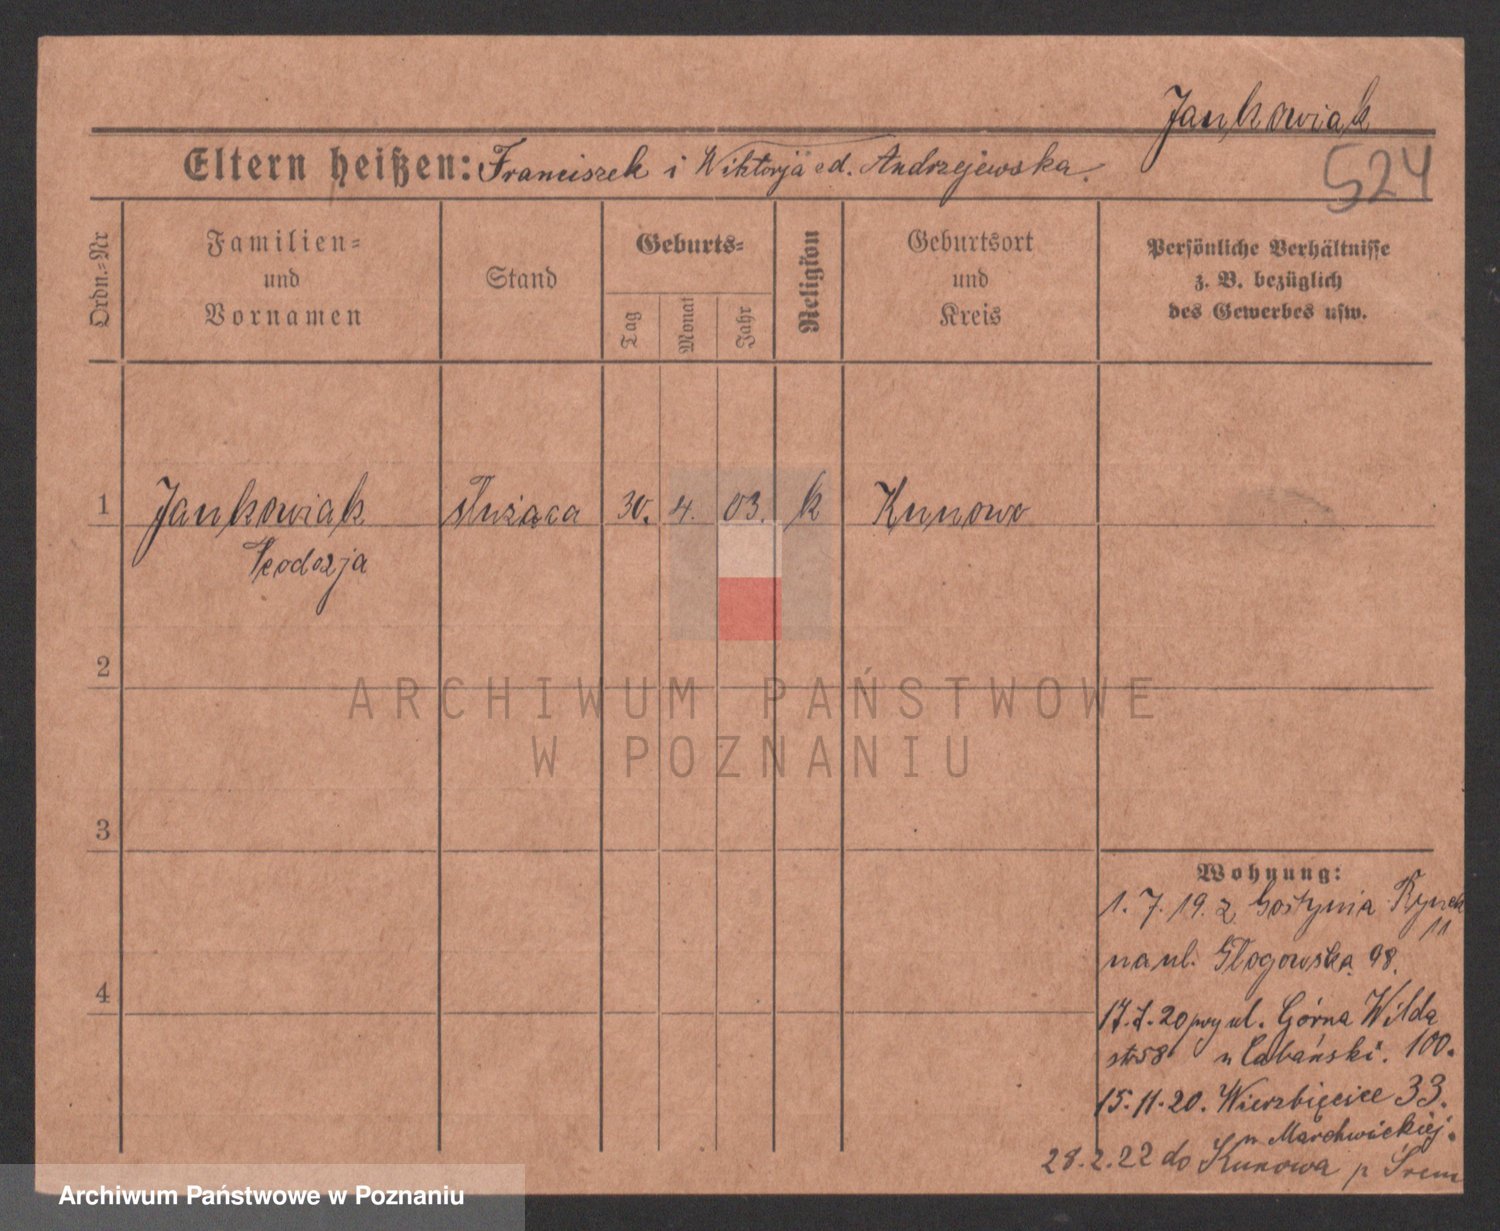 Jankowiak
Eltern heißen: Franciszek i Wiktorja ed. Andrzejewska.
524
Ordn.=Nr
Familien=
und
Vornamen
Stand
Geburts=
Tag
Monat
Jahr
Religion
Geburtsort
und
Kreis
Persönliche Verhältnisse
z. B. bezüglich
des Gewerbes usw.
1 Jankowiak służąca 30. 4. 03. k Kunowo
Teodozja
2
ARCHIWUM PAŃSTWOWE
W POZNANIU
3
Wohnung:
1. 7. 19. z Gostynia Rynek
11
na ul. Głogowska 98.
4
17.7.20 przy ul. Górna Wilda
str 58 u Łabański. 100.
15.11.20. Wierzbięcice 33.
u Marchwickiej.
28.2.22 do Kunowa p Śrem
Archiwum Państwowe w Poznaniu